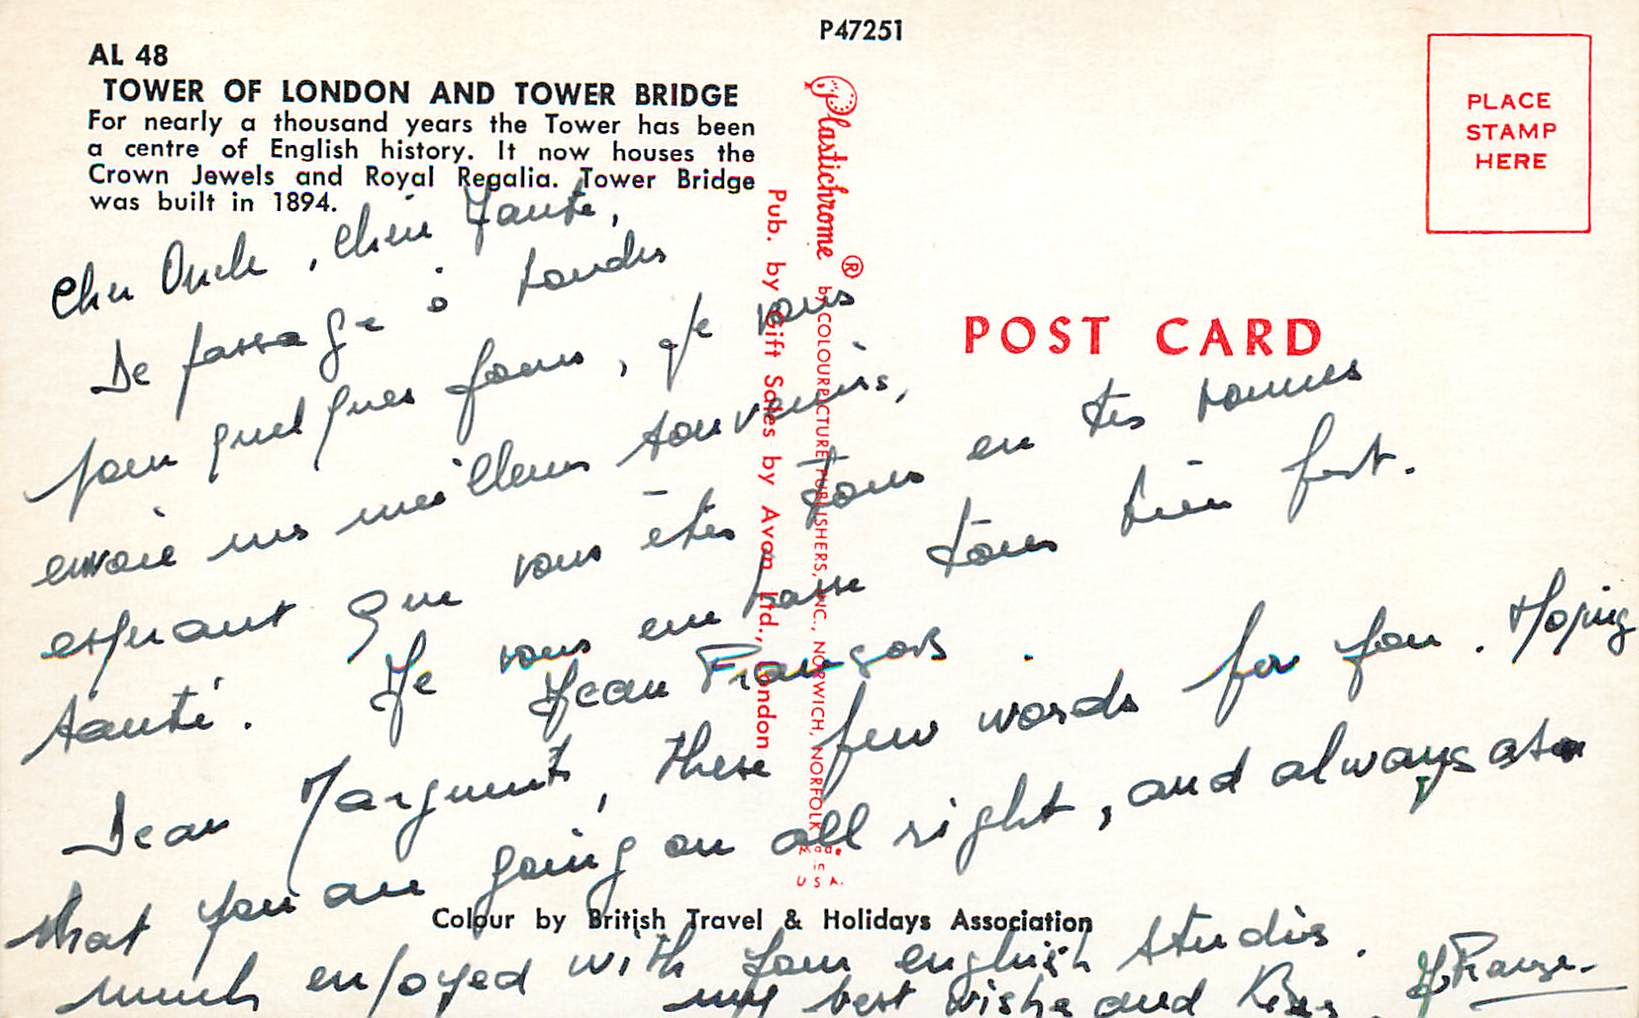 P47251
AL 48
TOWER OF LONDON AND TOWER BRIDGE
For nearly a thousand years the Tower has been
a centre of English history. It now houses the
Crown Jewels and Royal Regalia. Tower Bridge
was built in 1894.
PLACE
STAMP
HERE
POST CARD
Plastichrome ® by COLOURPICTURE PUBLISHERS, INC., NORWICH, NORFOLK
Made
in
USA.
Pub. by Gift Sales by Avon Ltd., London
Cher Oncle, Chère Tante,
De passage à Londres
pour quelques jours, je vous
envoie mes meilleurs souvenirs,
espérant que vous êtes tous en très bonnes
santé. Je vous embrasse tous bien fort.
Jean François
Dear Marguerite, these few words for you. Hoping
that you are going on all right, and always as
much enjoyed with your english studies.
my best wishes and Kiss. J. François
Colour by British Travel & Holidays Association